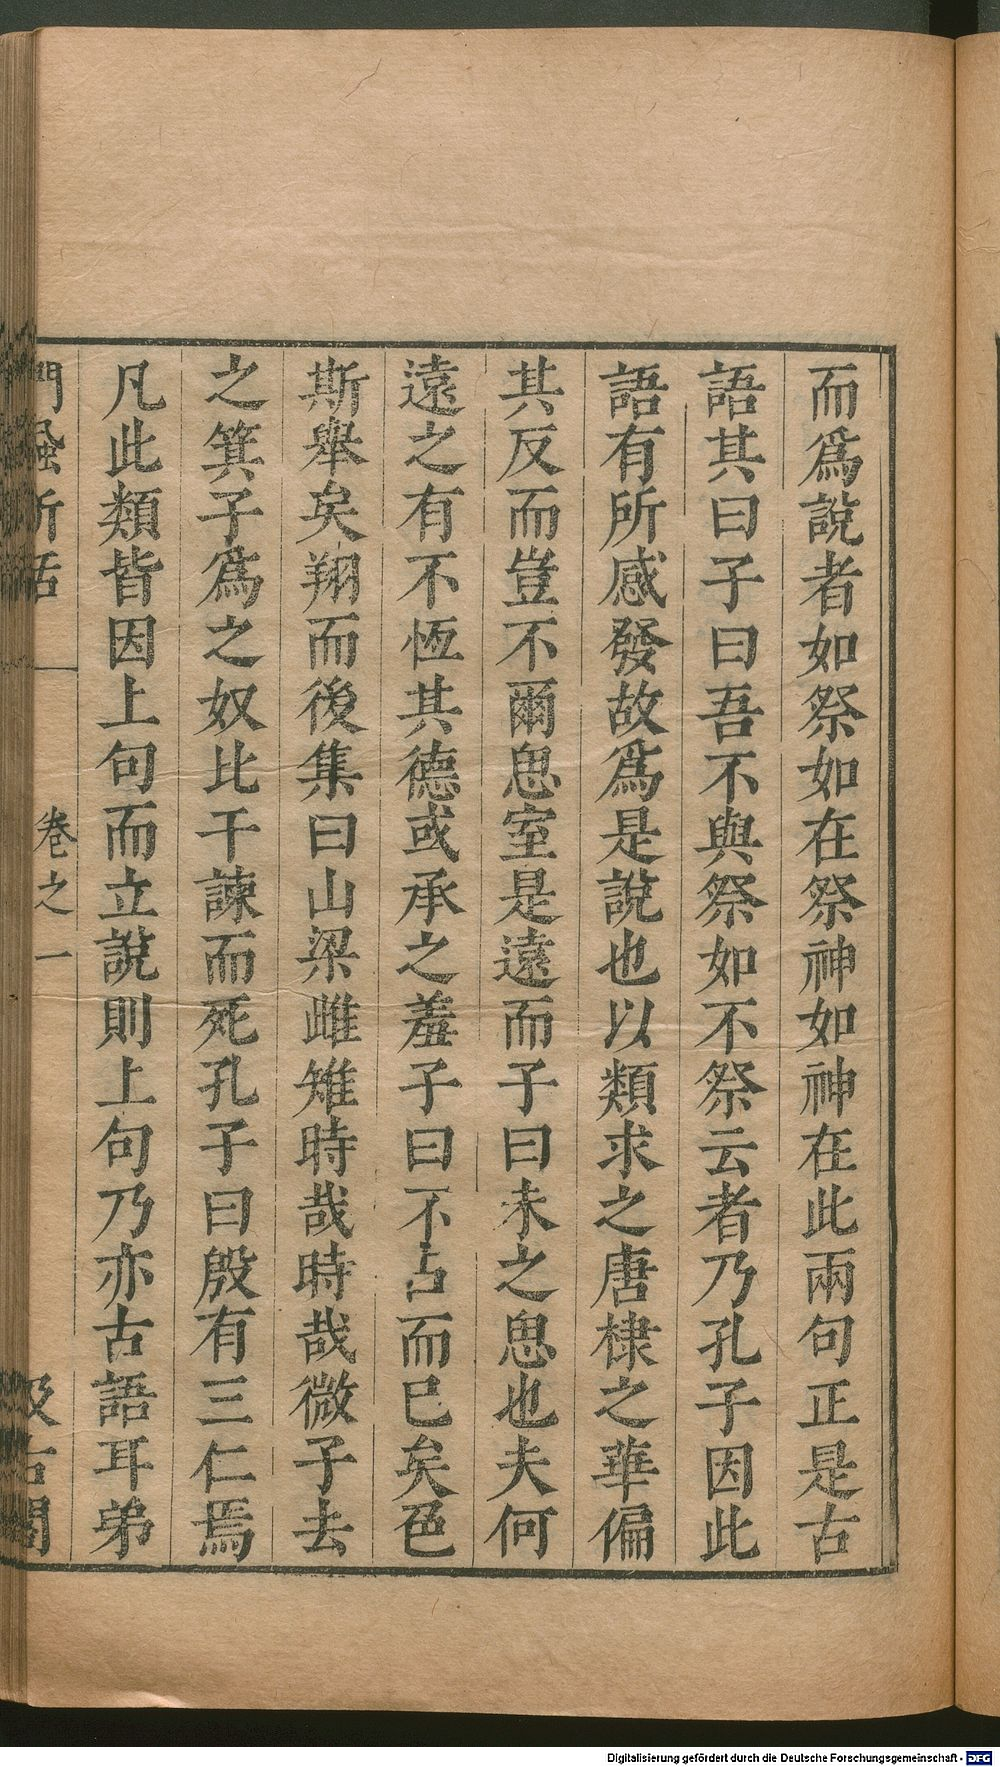 而爲說者如祭如在祭神如神在此兩句正是古
語其曰子曰吾不與祭如不祭云者乃孔子因此
語有所感發故爲是說也以類求之唐棣之華偏
其反而豈不爾思室是遠而子曰未之思也夫何
遠之有不恆其德或承之羞子曰不占而已矣色
斯舉矣翔而後集曰山梁雌雉時哉時哉微子去
之箕子爲之奴比干諫而死孔子曰殷有三仁焉
凡此類皆因上句而立說則上句乃亦古語耳弟
卷之一
Digitalisierung gefördert durch die Deutsche Forschungsgemeinschaft - DFG